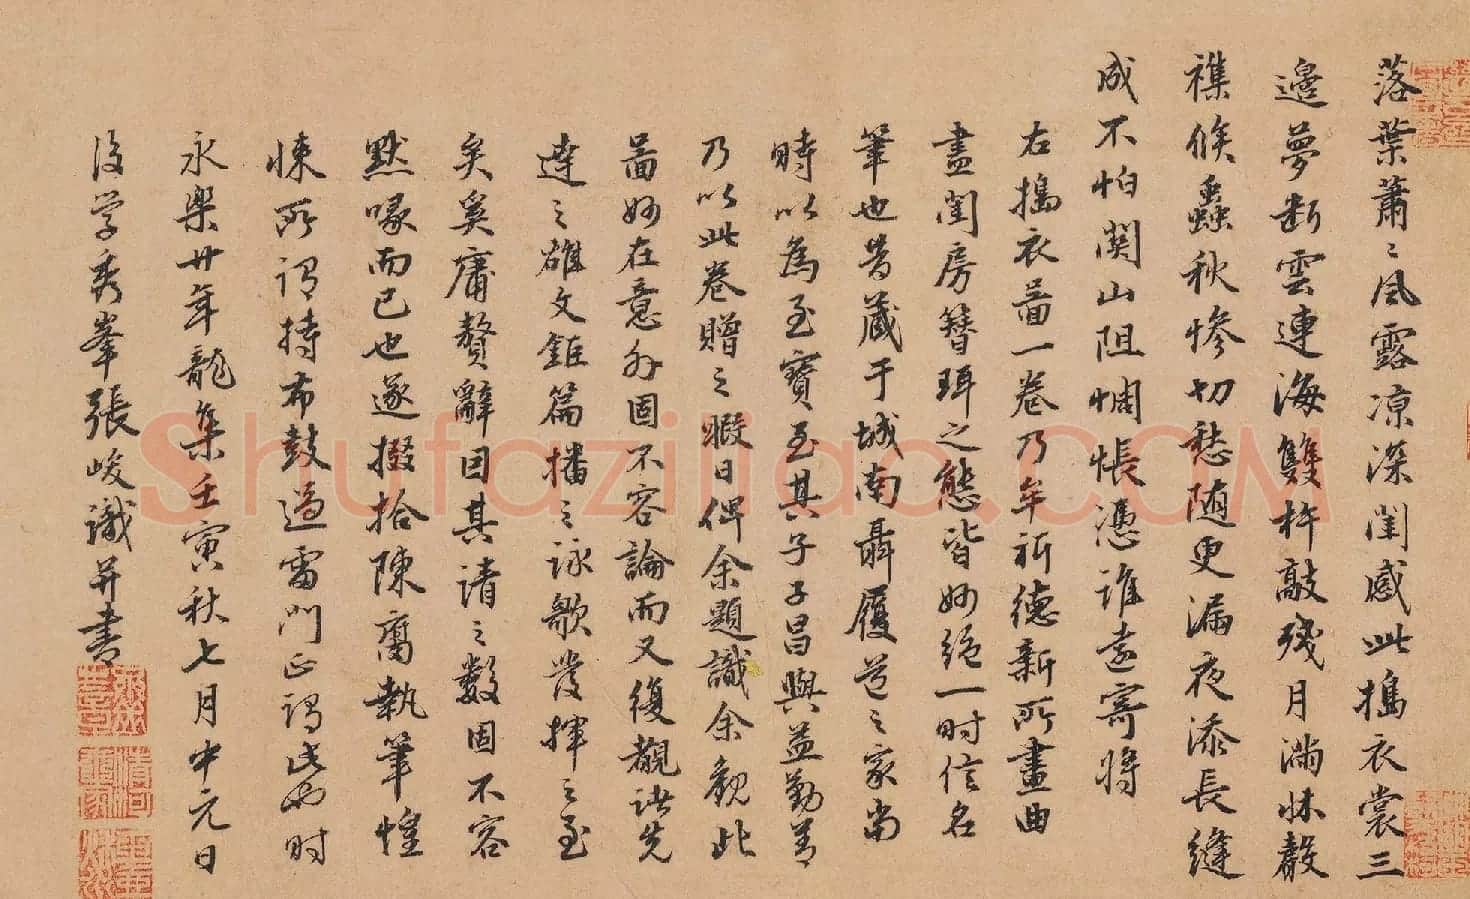 落葉蕭〻風露凉深閨感此搗衣裳三
邊夢斷雲連海雙杵敲殘月滿牀聲
襍候蟲秋慘切愁随更漏夜添長縫
成不怕関山阻惆悵憑誰遠寄將
右搗衣啚一卷乃牟祈德新所畫曲
盡閨房簪珥之態皆妙絕一时信名
筆也昔藏于城南聶履道之家尚
時以為至寶至其子子昌與益勤善
乃以此卷贈之暇日俾余題識余觀此
啚妙在意外固不容論而又復觀諸先
達之雄文鉅篇播之詠歌發揮之至
矣奚庸贅辭因其請之數固不容
默喙而已也遂掇拾陳腐執筆惶
悚所謂持布鼓過雷門正謂此也时
永樂廿年龍集壬寅秋七月中元日
後学秀峯張峻識并書
Shufaziliao.COM